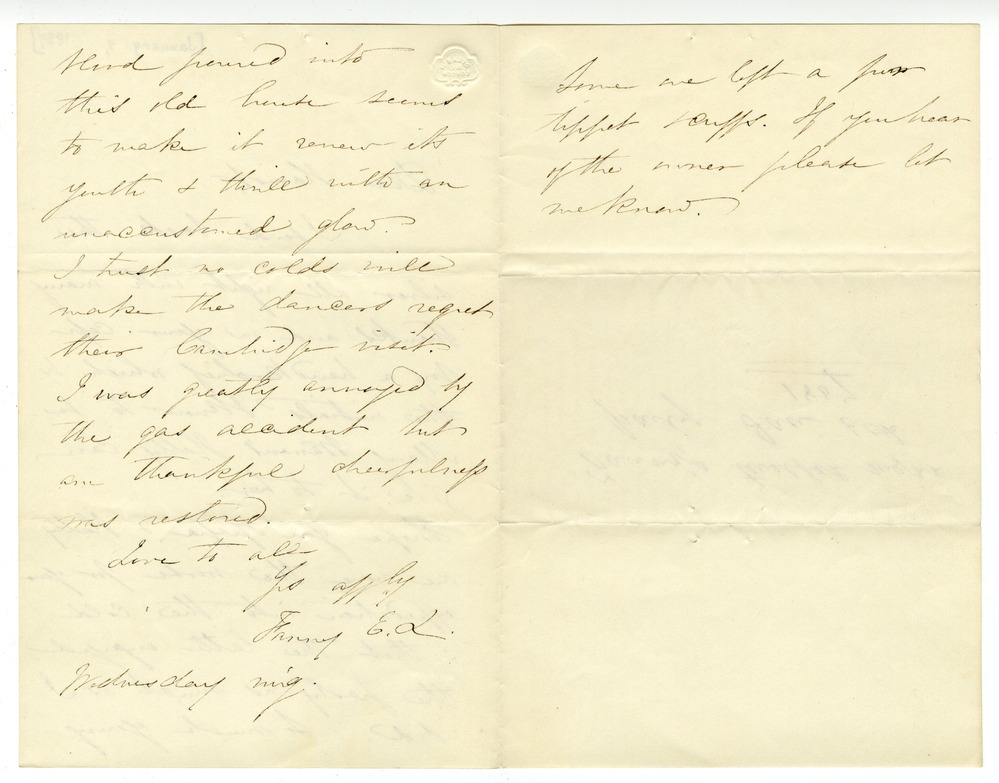 blood poured into
this old house seems
to make it renew its
youth & thrill with an
unaccustomed glow.
I trust no colds will
make the dancers regret
their Cambridge visit.
I was greatly annoyed by
the gas accident but
am thankful cheerfulness
was restored.
Love to all
Yrs affly
Fanny E. L.
Wednesday mg.
Some one left a fur
tippet & cuffs. If you hear
of the owner please let
me know.